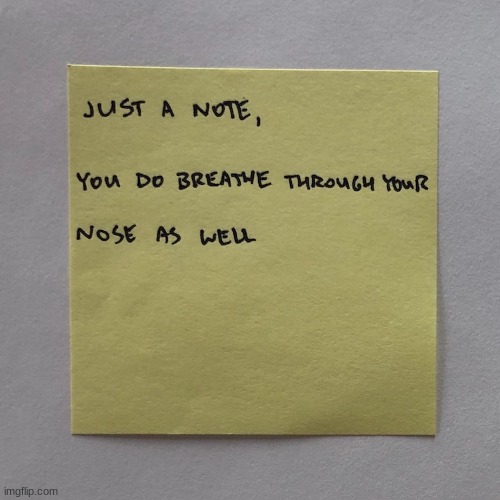 JUST A NOTE,
YOU DO BREATHE THROUGH YOUR
NOSE AS WELL
imgflip.com